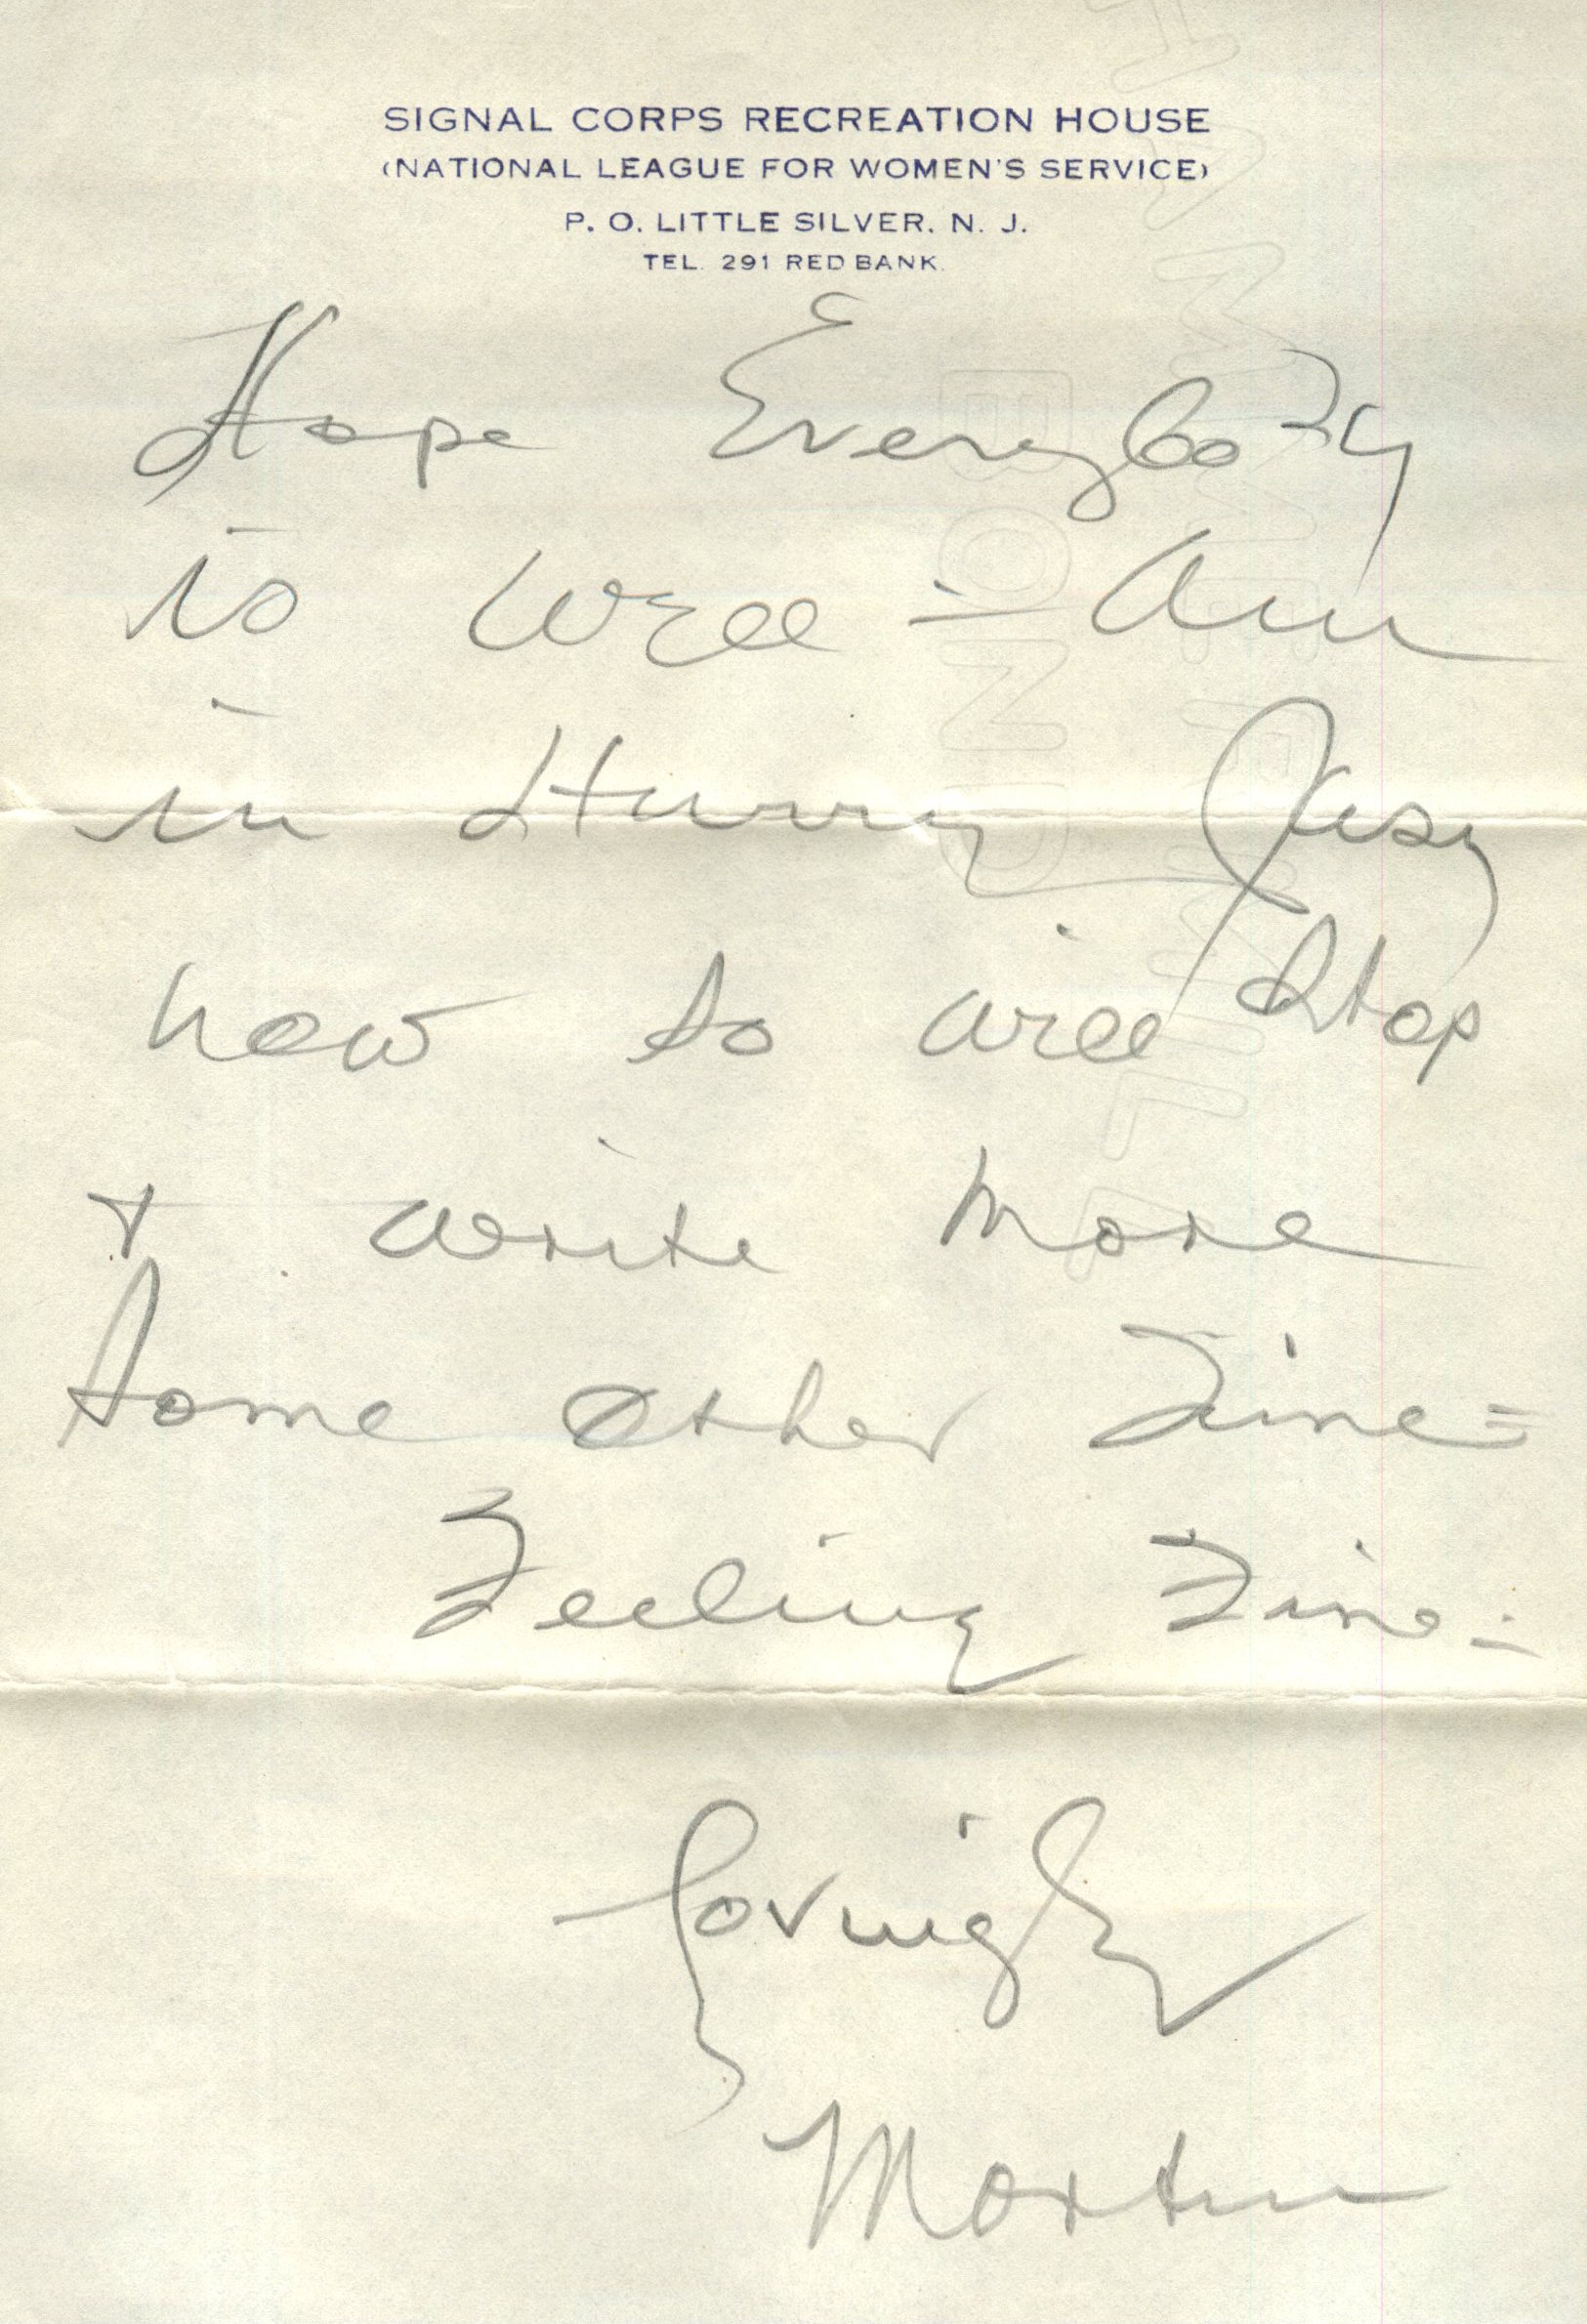 SIGNAL CORPS RECREATION HOUSE
(NATIONAL LEAGUE FOR WOMEN'S SERVICE)
P. O. LITTLE SILVER, N. J.
TEL. 291 RED BANK.
Hope Everybody
is well - Am
in Hurry Just
now so will Stop
& write more
some other Time =
Feeling Fine -
Lovingly
Morton